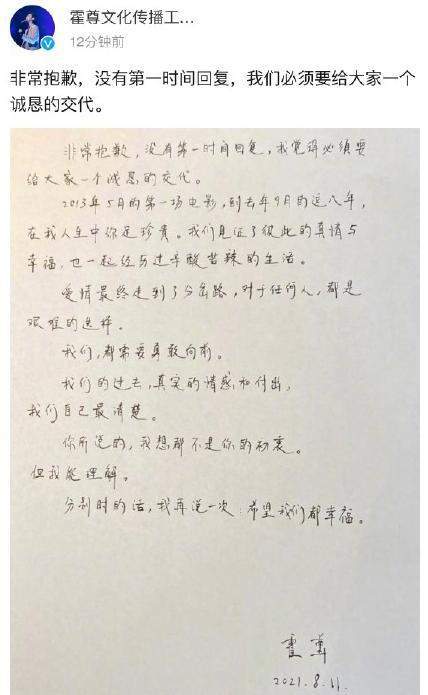 霍尊文化传播工...
12分钟前
非常抱歉，没有第一时间回复，我们必须要给大家一个
诚恳的交代。
非常抱歉，没有第一时间回复，我觉得必须要
给大家一个诚恳的交代。
2013年5月的第一场电影，到去年9月的这八年，
在我人生中你是珍贵。我们见证了彼此的真情与
幸福，也一起经历过辛酸苦辣的生活。
爱情最终走到了分岔路，对于任何人，都是
艰难的选择。
我们，都需要勇敢向前。
我们的过去，真实的情感和付出，
我们自己最清楚。
你所说的，我想都不是你的初衷。
但我能理解。
分别时的话，我再说一次：希望我们都幸福。
霍尊
2021.8.11.